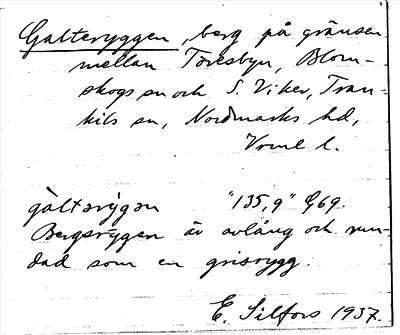 Galteryggen, berg på gränsen
mellan Töresbyn, Blom-
skogs sn och S. Viker, Tran-
kils sn, Nordmarks hd,
Vrml l.
gàltərýgən "135,9" 69.
Bergsryggen är avlång och run-
dad som en grisrygg.
E. Silfors 1937.